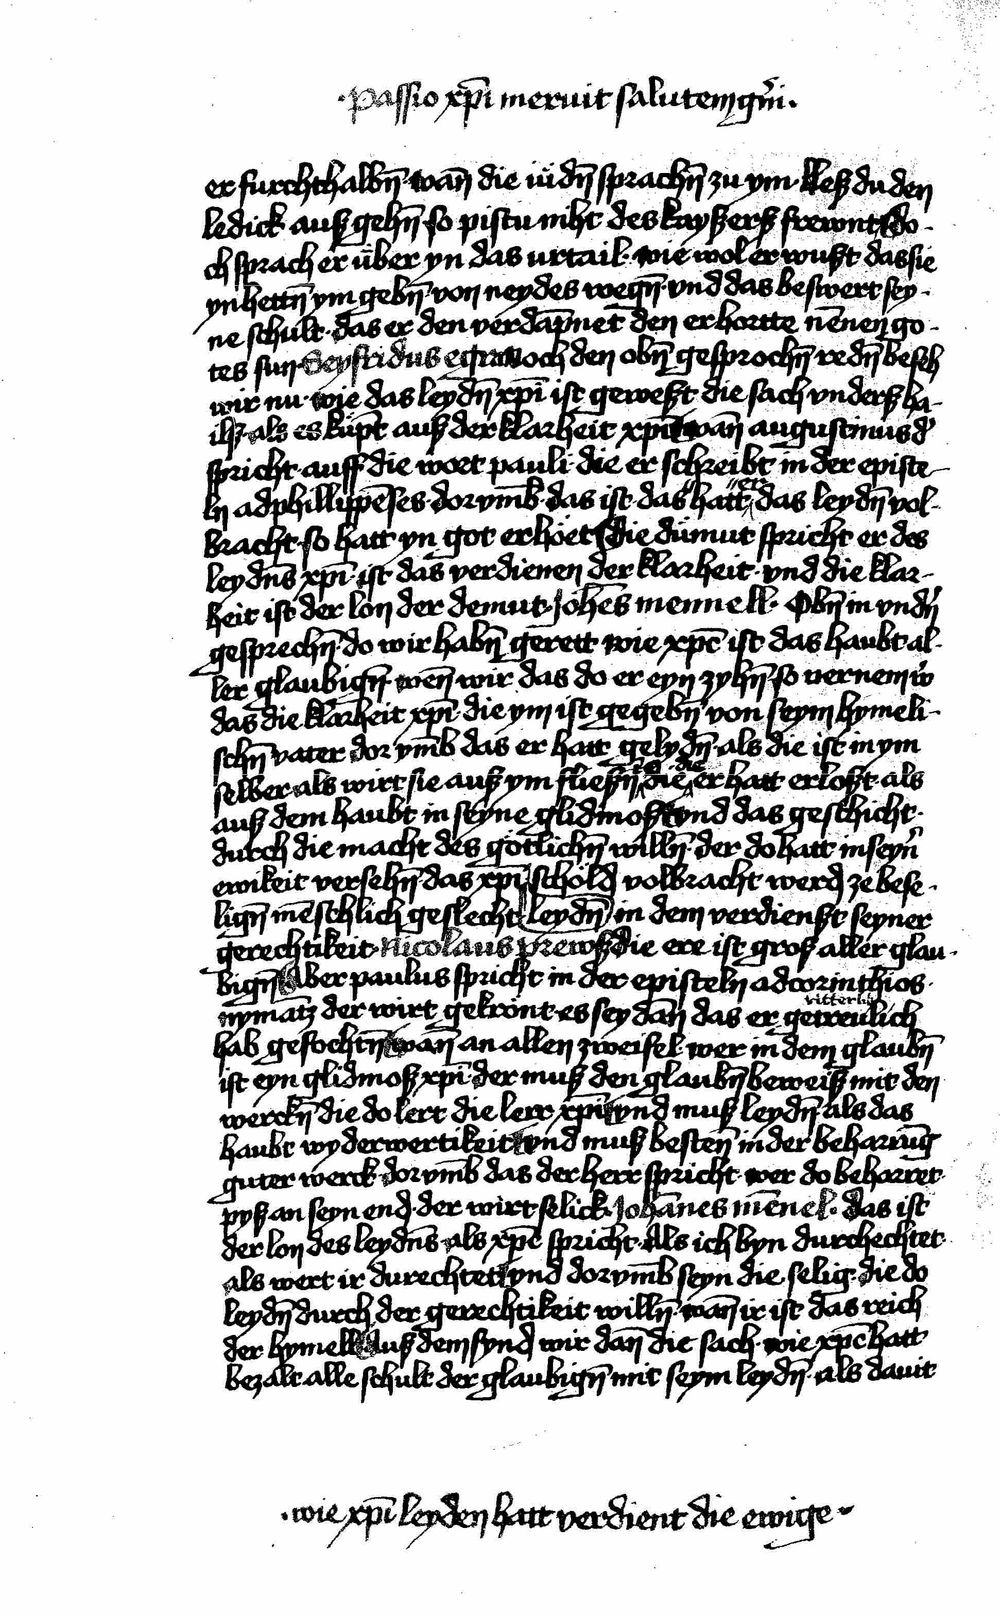 ·Passio xp̄i meruit salutem gn̄i·
er furchthalbn̄· wan̄ die iűdn̄ sprachn̄ zu ym· lesz du den
ledick ausz gehn̄· so pistu niht des kayszersz frewnt do-
ch sprach er über yn das urtail· wie wol er wuszt das sie
yn hettn̄ ym gebn̄ von neydes wegn̄· vnd das beswert sey-
ne schult· das er den verdāpnet den er hortte nēnen go-
tes sun· Seyfridus egra noch den obn̄ gesprochn̄ redn̄ beseh
wir nu· wie das leydn̄ xp̄i ist geweszt die sach vndersz ha-
ilsz· als es kűpt ausz der klarheit xp̄i wan̄ augustinus d'
spricht· auff die wort pauli· die er schreibt in der episte-
ln ad phillippēses· dorvmb· das ist· das hatt er das leydn̄ vol-
bracht· so hatt yn got erhőet die dűmut spricht er des
leydn̄s xp̄i· ist das verdienen der klarheit· vnd die klar-
heit ist der lon der demut· Joh̄es mennell· Obn̄ in vndn̄
gesprechn̄· do wir habn̄ gerett wie xp̄c ist das haubt al-
ler glaubign̄· wen̄ wir das do er eyn zyhn̄· so vernem w'
das die klarheit xp̄i· die ym ist gegebn̄ von seym hymeli-
schn̄ vater dorvmb das er hatt gelydn̄· als die ist in ym
selber· als wirt sie ausz ym flieszn̄ in die die er hatt erloszt· als
ausz dem haubt in seyne glidmosz vnd das geschicht·
durch die macht des gőtlichn̄ willn̄· der do hatt in seyn'
ewikeit versehn̄ das xp̄i schold volbracht werd ze bese-
lign̄ mēschlich geslecht leydn̄ in dem verdienszt seyner
gerechtikeit· Nicolaus prewsz die ere ist grosz aller glau-
bign̄ Aber paulus spricht in der episteln ad corinthios·
ritterlich
nymātz der wirt gekrőnt· es sey dān das er getreulich
hab gefochtn̄ wan̄ an allen zweifel· wer in dem glaubn̄
ist eyn glidmosz xp̄i· der musz den glaubn̄ beweisz mit den
werckn̄ die do lert die lerr xp̄i vnd musz leydn̄ als das
haubt wyderwertikeit vnd musz besten̄ in der beharrūg
guter werck· dorvmb das der herr spricht· wer do beharret·
pysz an seyn end· der wirt selick· Johānes mēnel· das ist
der lon des leydn̄s· als xp̄c spricht· Als ich byn durchechtet
als wert ir durechtet vnd dorvmb seyn die selig· die do
leydn̄ durch der gerechtikeit willn̄· wan̄ ir ist das reich
der hymell Ausz dem synd wir dan̄ die sach· wie xp̄c hatt
bezalt alle schult der glaubign̄ mit seym leydn̄· als dauit
·wie xp̄i leyden hatt verdient die ewige·